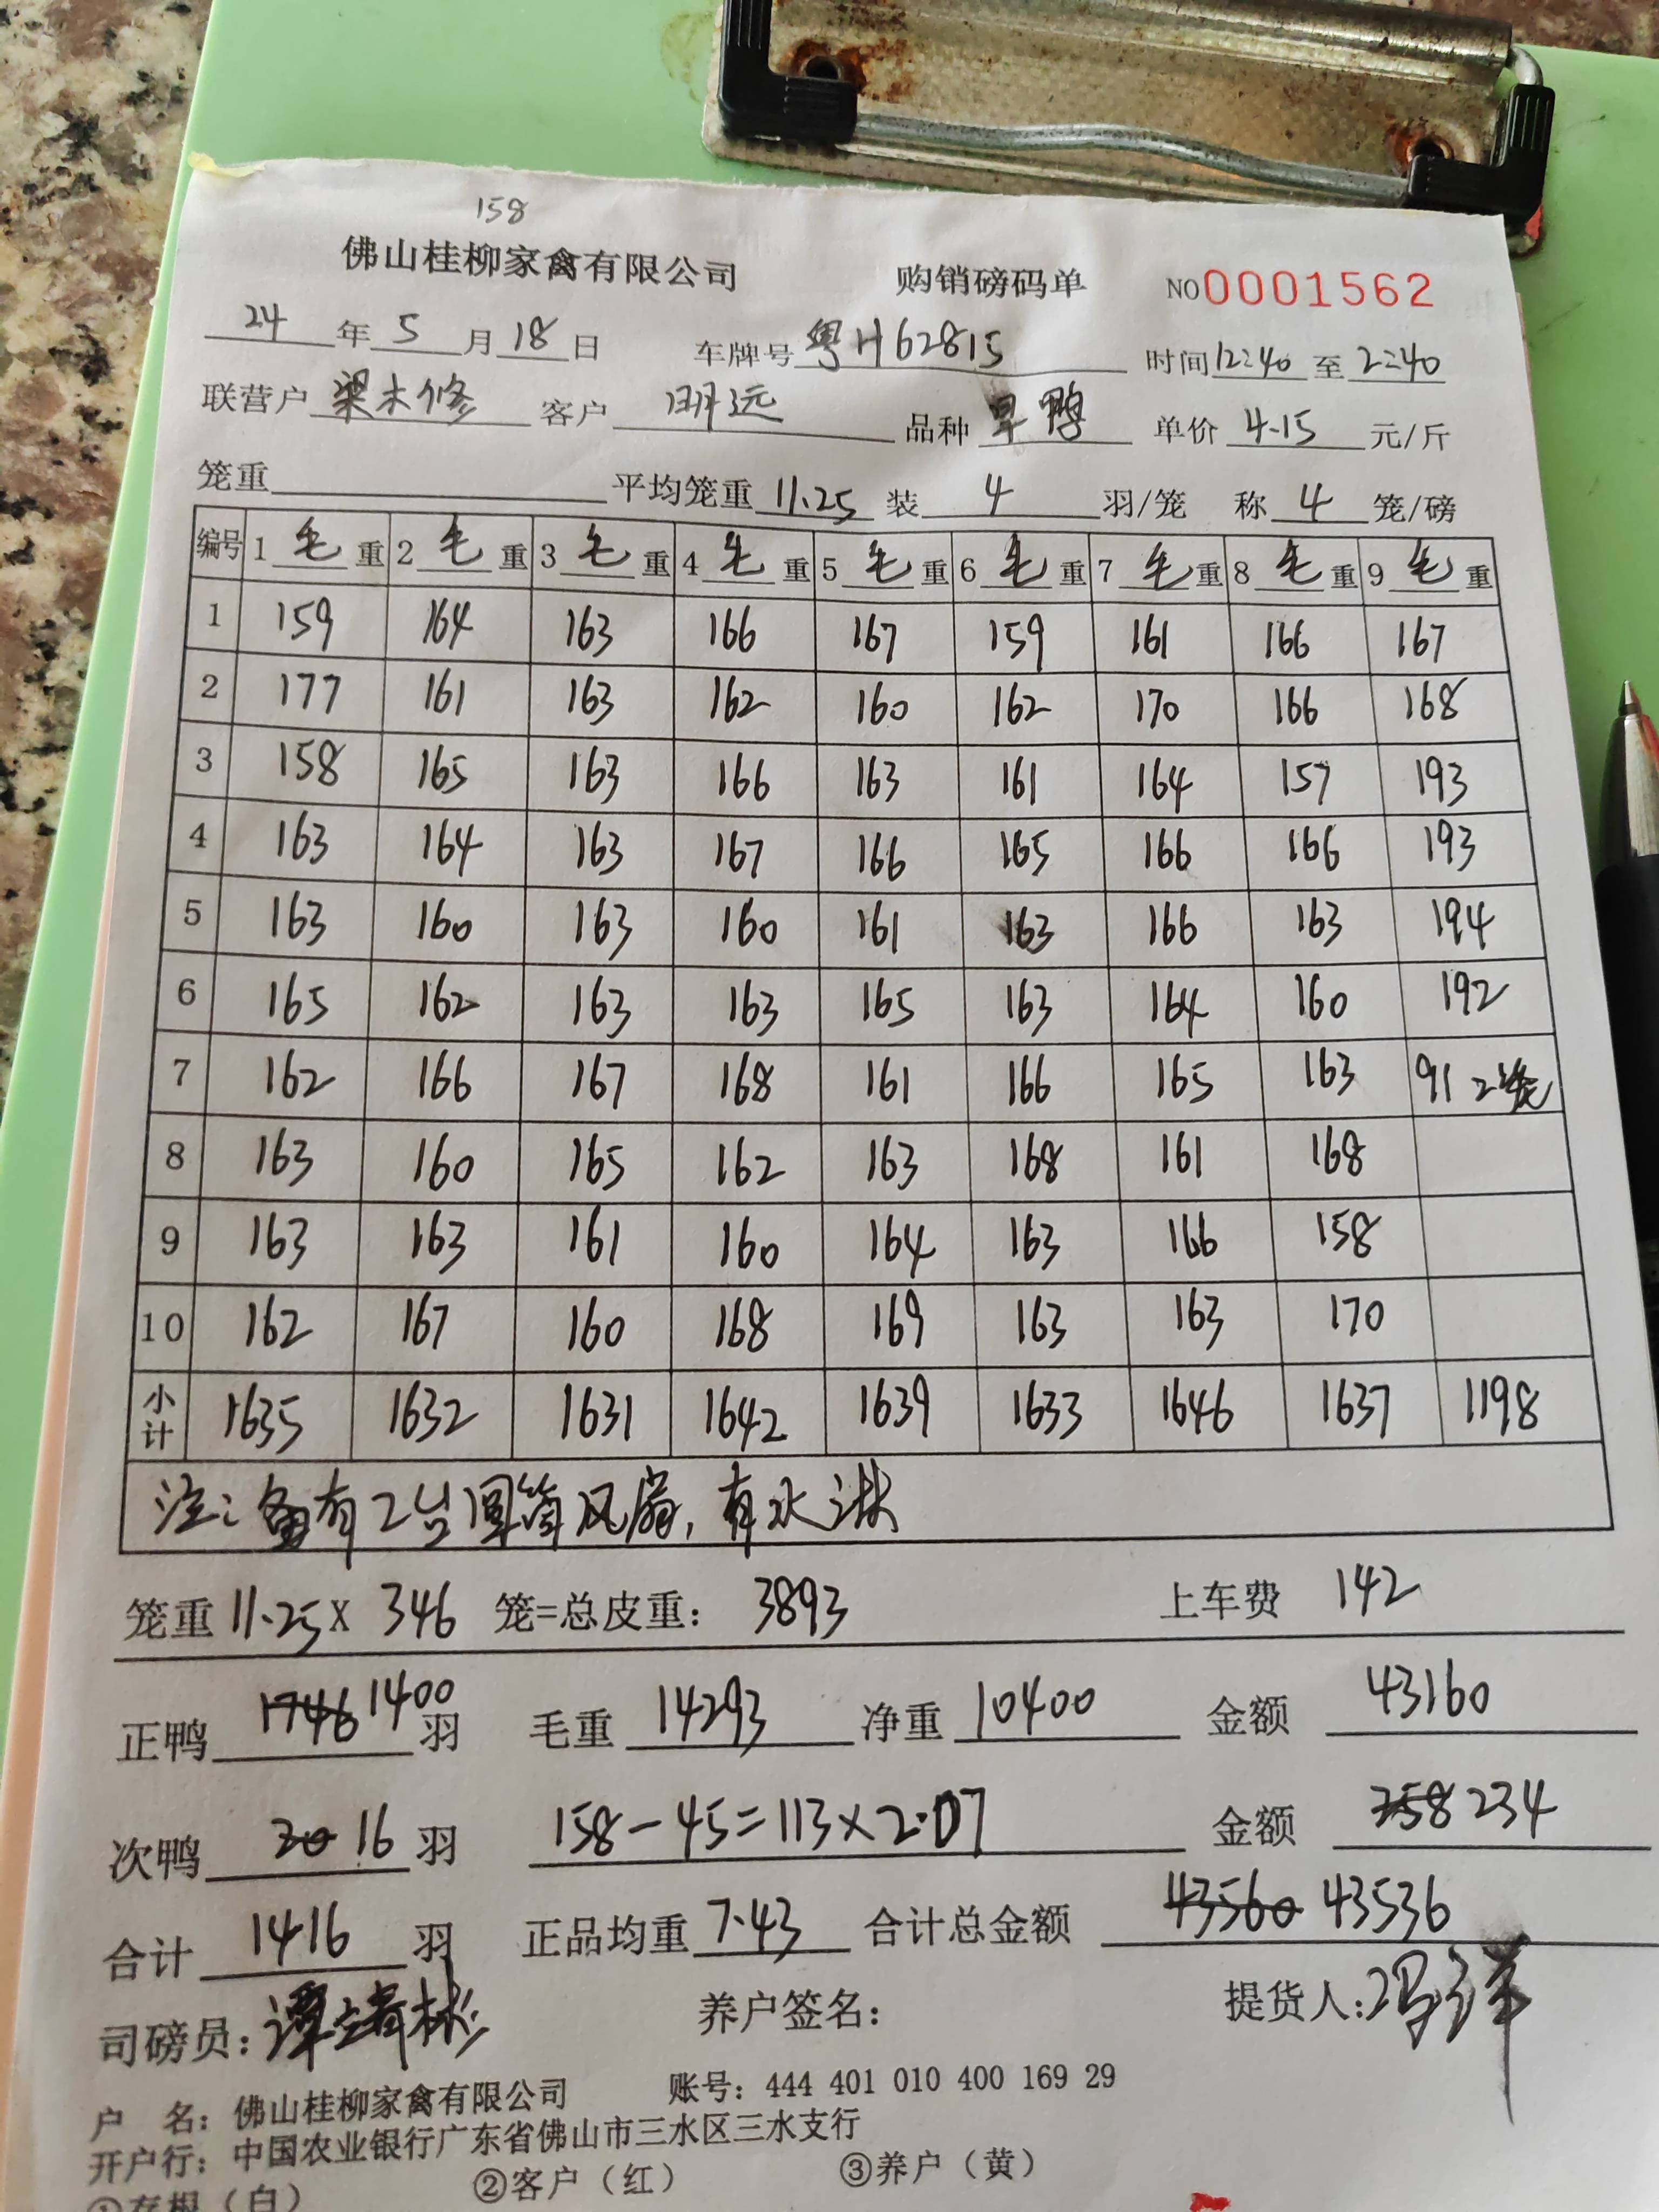 158
佛山桂柳家禽有限公司 购销磅码单 NO0001562
24年5月18日 车牌号粤H62815 时间12:40至2:40
联营户梁木修 客户明远 品种旱鸭 单价4.15元/斤
笼重 平均笼重11.25 装4羽/笼 称4笼/磅
编号 1毛重 2毛重 3毛重 4毛重 5毛重 6毛重 7毛重 8毛重 9毛重
1 159 164 163 166 167 159 161 166 167
2 177 161 163 162 160 162 170 166 168
3 158 165 163 166 163 161 164 157 193
4 163 164 163 167 166 165 166 166 193
5 163 160 163 160 161 163 166 163 194
6 165 162 163 163 165 163 164 160 192
7 162 166 167 168 161 166 165 163 91 2笼
8 163 160 165 162 163 168 161 168
9 163 163 161 160 164 163 166 158
10 162 167 160 168 169 163 163 170
小计 1635 1632 1631 1642 1639 1633 1646 1637 1198
注:备有2台圆筒风扇,有水淋
笼重11.25X 346 笼=总皮重: 3893 上车费 142
正鸭 1746 1400羽 毛重14293 净重10400 金额 43160
次鸭 20 16羽 158-45=113×2.07 金额 258 234
合计 1416 羽 正品均重7.43 合计总金额 43560 43536
司磅员: 养户签名: 提货人:
户 名: 佛山桂柳家禽有限公司 账号: 444 401 010 400 169 29
开户行: 中国农业银行广东省佛山市三水区三水支行
①存根(白) ②客户(红) ③养户(黄)